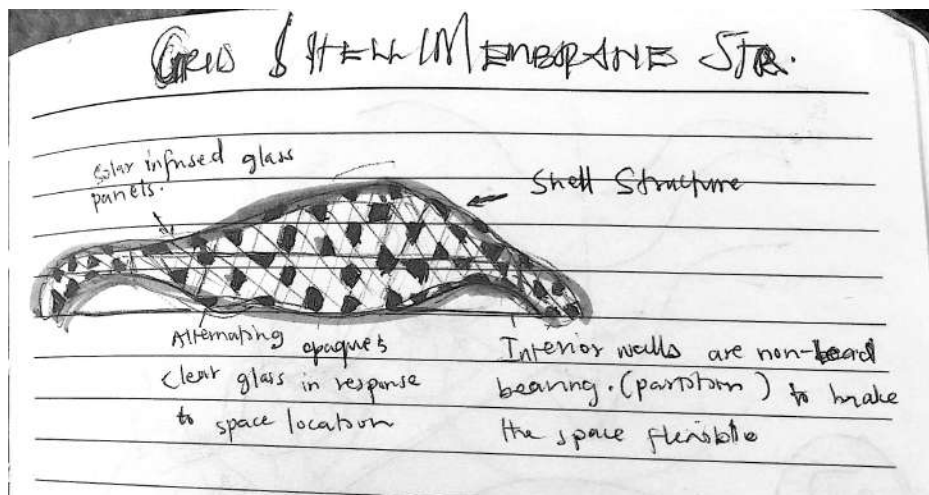 GRID SHELL/MEMBRANE STR.
Solar infused glass
panels.
Shell Structure
Alternating opaque &
clear glass in response
to space location
Interior walls are non-load
bearing. (partition) to brake
the space flexible